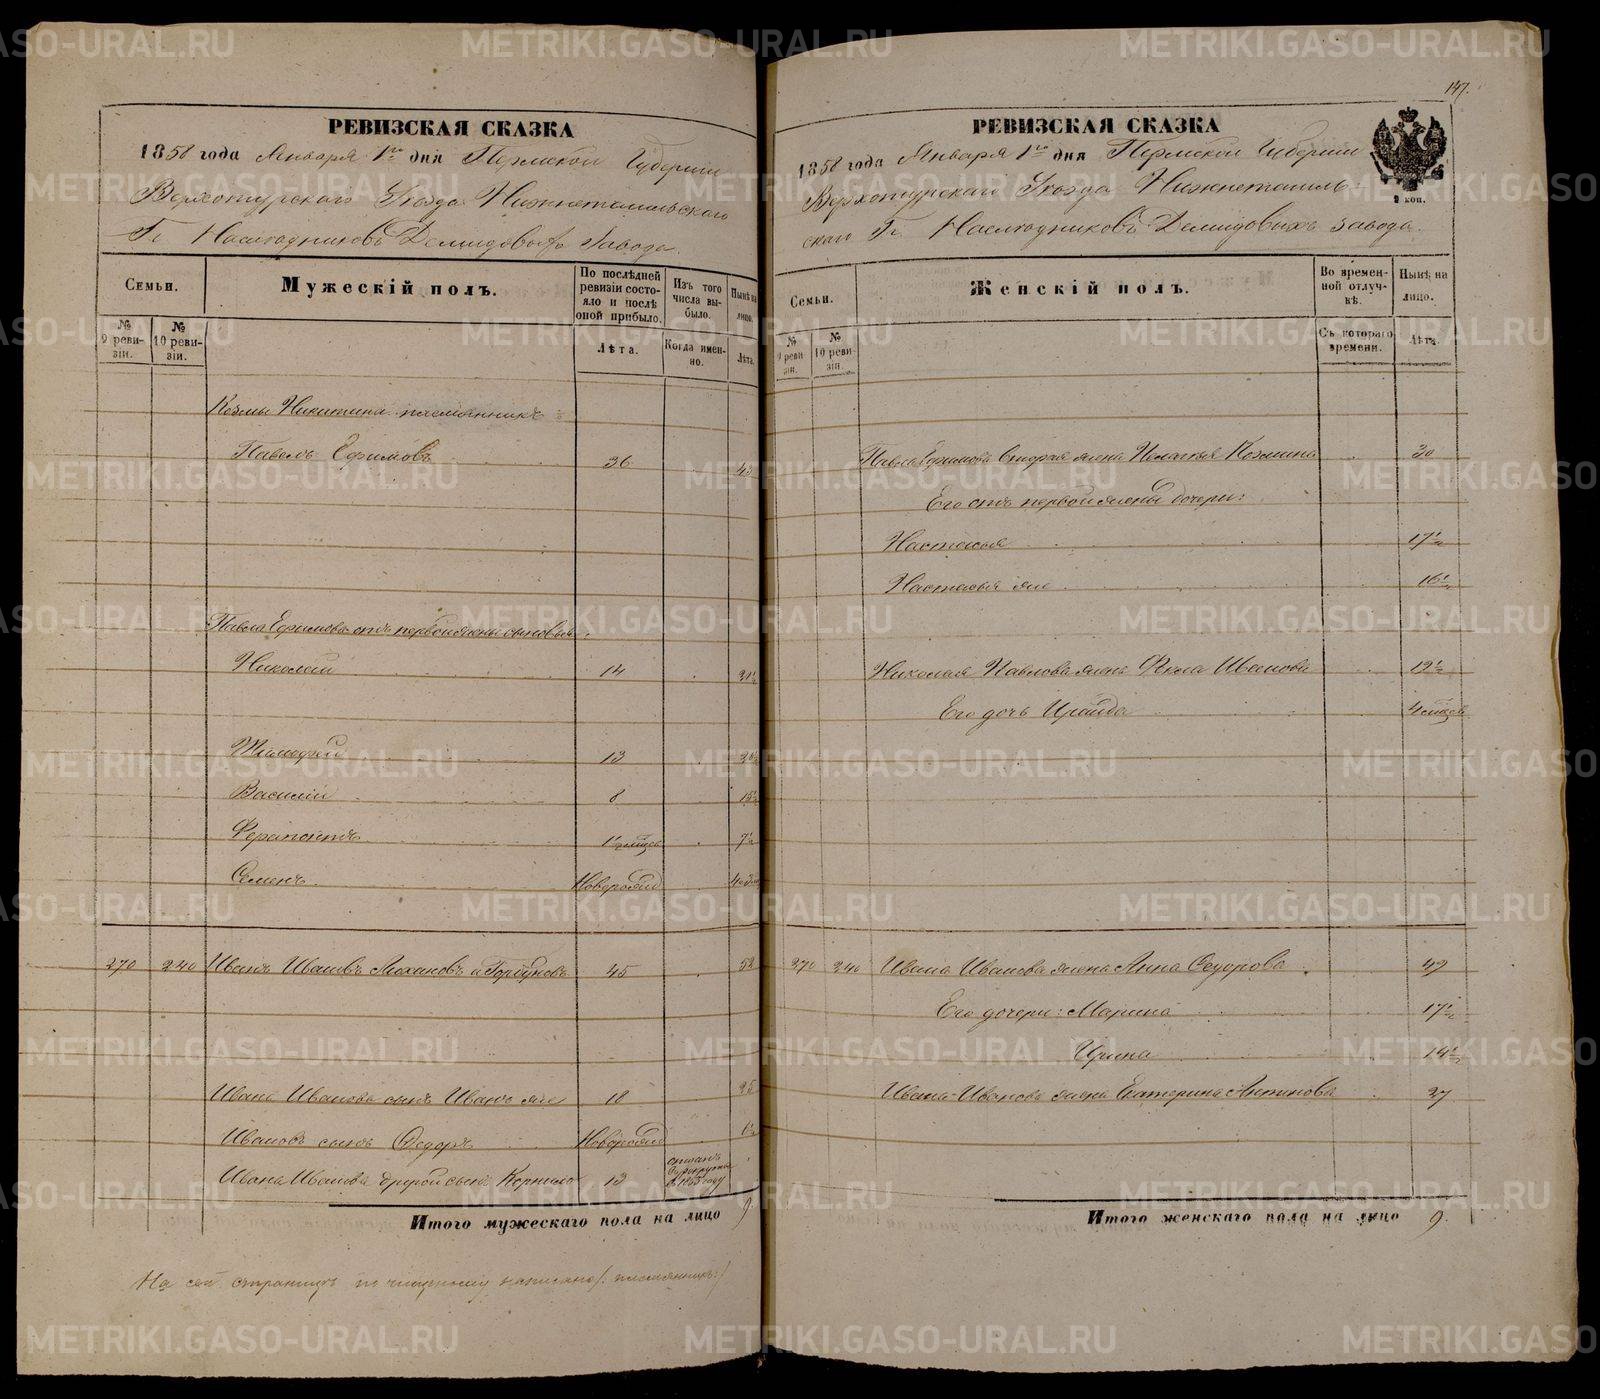 147.
РЕВИЗСКАЯ СКАЗКА
1858 года Января 1го дня Пермской Губернии
Верхотурскаго Уѣзда Нижнетагильскаго
Гг. Наслѣдниковъ Демидовыхъ Завода.
Семьи.
Мужескій полъ.
По послѣдней ревизіи состояло и послѣ оной прибыло.
Изъ того числа выбыло.
Нынѣ на лицо.
№ 9 ревизіи.
№ 10 ревизіи.
Лѣта.
Когда именно.
Лѣта.
Козмы Никитина племянникъ
Павелъ Ефимовъ 36 43
Павла Ефимова отъ первой жены сыновья
Николай 14 21½
Тимофей 13 20½
Василій 8 15½
Ферапонтъ 7½
Семенъ Новорожд
270 240 Иванъ Ивановъ и Горбуновъ 45 52
Ивана Иванова сынъ Иванъ же 18 25
Ивановъ сынъ Федоръ Новорожд
Ивана Иванова другой сынъ Корнило 13 отданъ въ рекруты въ 1855 году
Итого мужескаго пола на лицо 9.
На сей страницѣ по написано /: племянникъ :/
РЕВИЗСКАЯ СКАЗКА
1858 года Января 1го дня Пермской Губерніи
Верхотурскаго Уѣзда Нижнетагильскаго
Гг. Наслѣдниковъ Демидовыхъ завода.
2 коп.
Семьи.
Женскій полъ.
Во временной отлучкѣ.
Нынѣ на лицо.
№ 9 ревизіи.
№ 10 ревизіи.
Съ котораго времени.
Лѣта.
Павла Ефимова вторая жена Пелагея Козмина 30
Его отъ первой жены дочери:
Настасья 17½
Настасья же 16½
Николая Павлова жена Фекла Иванова 19½
Его дочь Ираида 4 мѣсяцов
270 240 Ивана Иванова жена Анна Федорова 49
Его дочери: Марина 17½
Ирина 14½
Ивана Иванова жена Екатерина Антипова 27
Итого женскаго пола на лицо 9.
METRIKI.GASO-URAL.RU